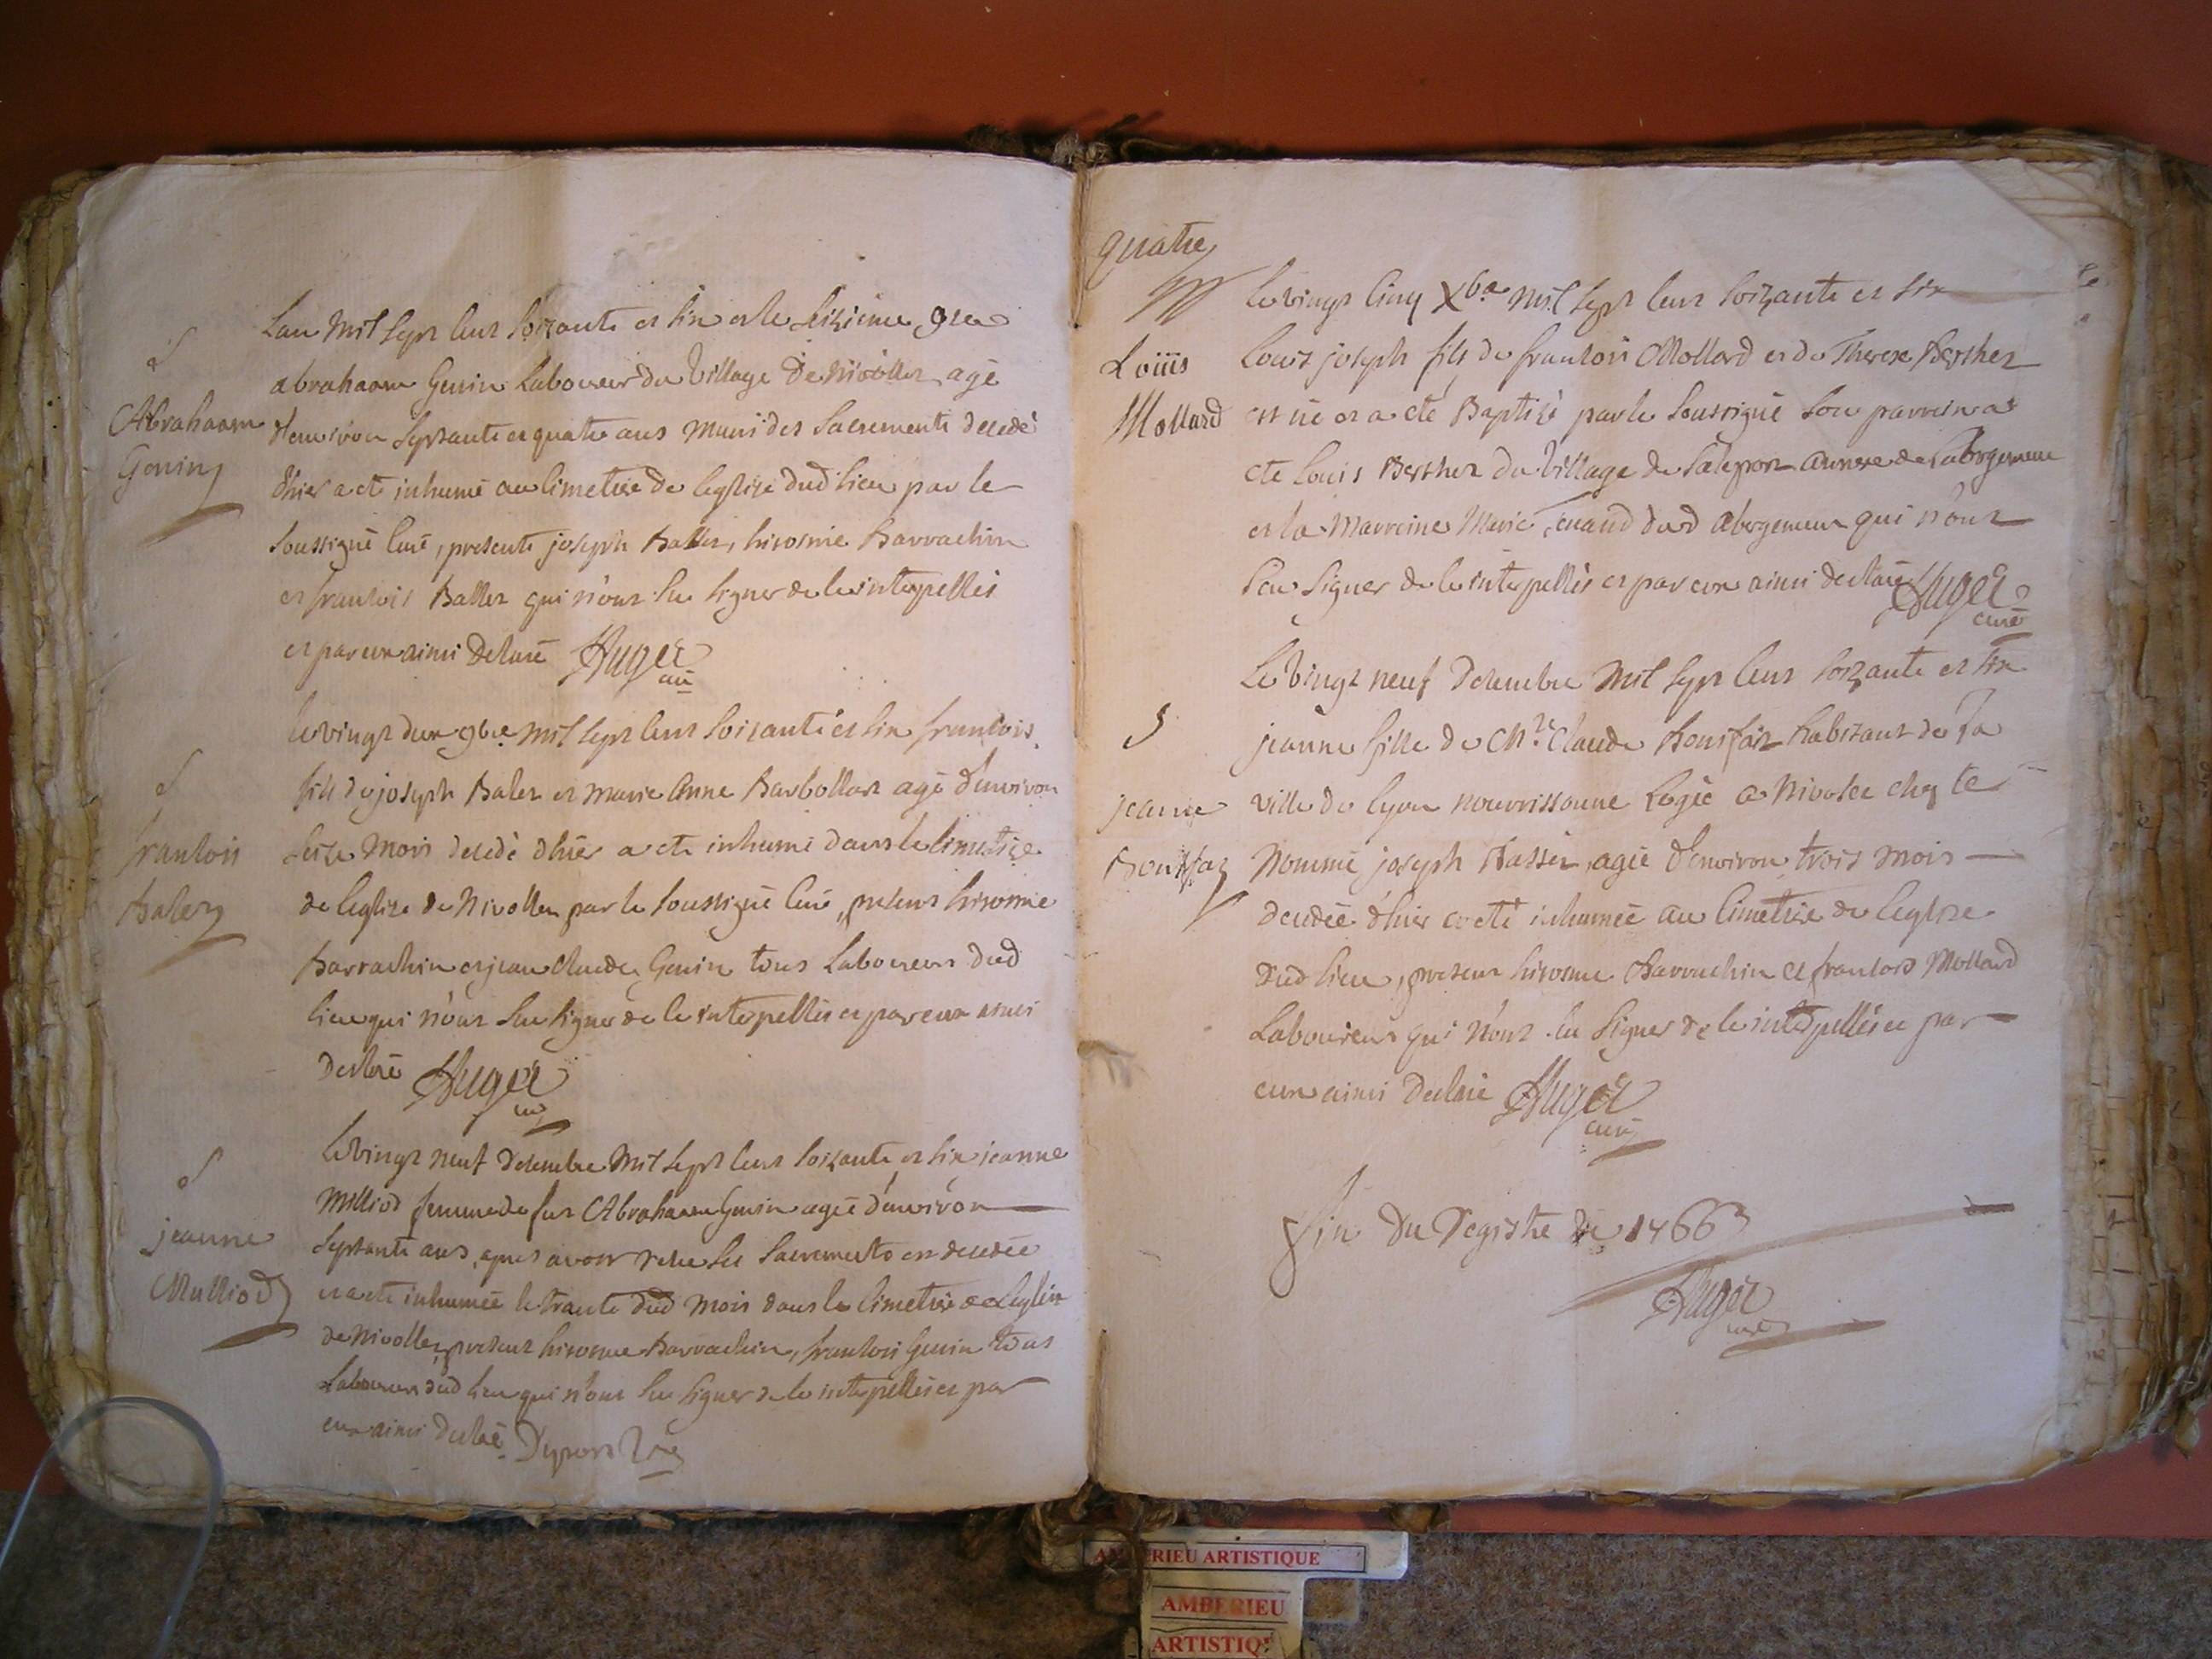 Lan mil sept cent soizante et six et le seizieme 9re
abrahaam Genin Laboureur du village de nivollet agé
d'environ septante et quatre ans muni des Sacrements decedé
d'hier a eté inhumé au cimetiere de leglise dud lieu par le
soussigné curé, presents joseph Ballet, hierosme Barrachin
et francois Ballet qui n'ont su signer de ce interpellés
et par eux ainsi declaré Auger
curé
Abrahaam
Genin
le vingt deux 9bre mil sept cent soizante et six francois
fils de joseph Balet et marie Anne Barbollat agé d'environ
seize mois decedé d'hier a eté inhumé dans le cimetiere
de leglize de Nivollet par le soussigné curé, presents hierosme
Barrachin et jean claude Genin tous Laboureurs dud
lieu qui n'ont su signer de ce interpellés et par eux ainsi
declaré Auger
curé
francois
Balet
le vingt neuf decembre mil sept cent soizante et six jeanne
Milliod femme de feu Abrahaam Genin agée d'environ
septante ans, apres avoir reçu ses sacrements est decedée
et a eté inhumée le trante dud mois dans le cimetiere de Leglise
de Nivollet, presents hierosme Barrachin, francois Genin tous
Laboureurs dud lieu qui n'ont su signer de ce interpellés et par
eux ainsi declaré
jeanne
Milliod
quatre
le vingt cinq Xbre mil sept cent soizante et six
Louis joseph fils de francois Mollard et de Therese Berthet
est né et a eté Baptisé par le soussigné son parrein a
eté Louis Berthet du village de annexe de Labergement
et la Marreine Marie dud abergement qui n'ont
seu signer de ce interpellés et par eux ainsi declaré Auger
curé
Loüis
Mollard
Le vingt neuf decembre mil sept cent soizante et six
jeanne fille de Claude habitant de la
ville de lyon nourrissonne Logée a Nivolet chez le
Nommé joseph agée d'environ trois mois
decedée d'hier a eté inhumée au cimetiere de leglise
dud lieu, presents hierosme Barrachin et francois Mollard
Laboureurs qui n'ont su signer de ce interpellés et par
eux ainsi declaré Auger
curé
jeanne
fin du Registre de 1766
Auger
curé
AMBERIEU ARTISTIQUE
AMBERIEU
ARTISTIQ